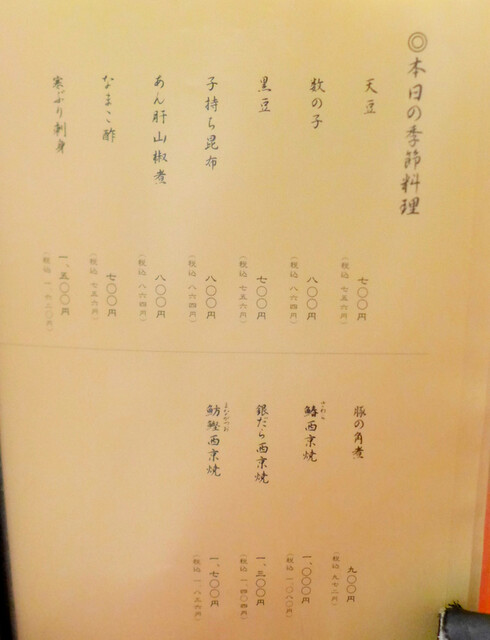 ◎本日の季節料理
天豆
七〇〇円
(税込 七五六円)
数の子
八〇〇円
(税込 八六四円)
黒豆
七〇〇円
(税込 七五六円)
子持ち昆布
八〇〇円
(税込 八六四円)
あん肝山椒煮
八〇〇円
(税込 八六四円)
なまこ酢
七〇〇円
(税込 七五六円)
寒ぶり刺身
一、五〇〇円
(税込 一、六二〇円)
豚の角煮
九〇〇円
(税込 九七二円)
さわら
鰆西京焼
一、〇〇〇円
(税込 一、〇八〇円)
銀だら西京焼
一、三〇〇円
(税込 一、四〇四円)
まながつお
魴鰹西京焼
一、七〇〇円
(税込 一、八三六円)